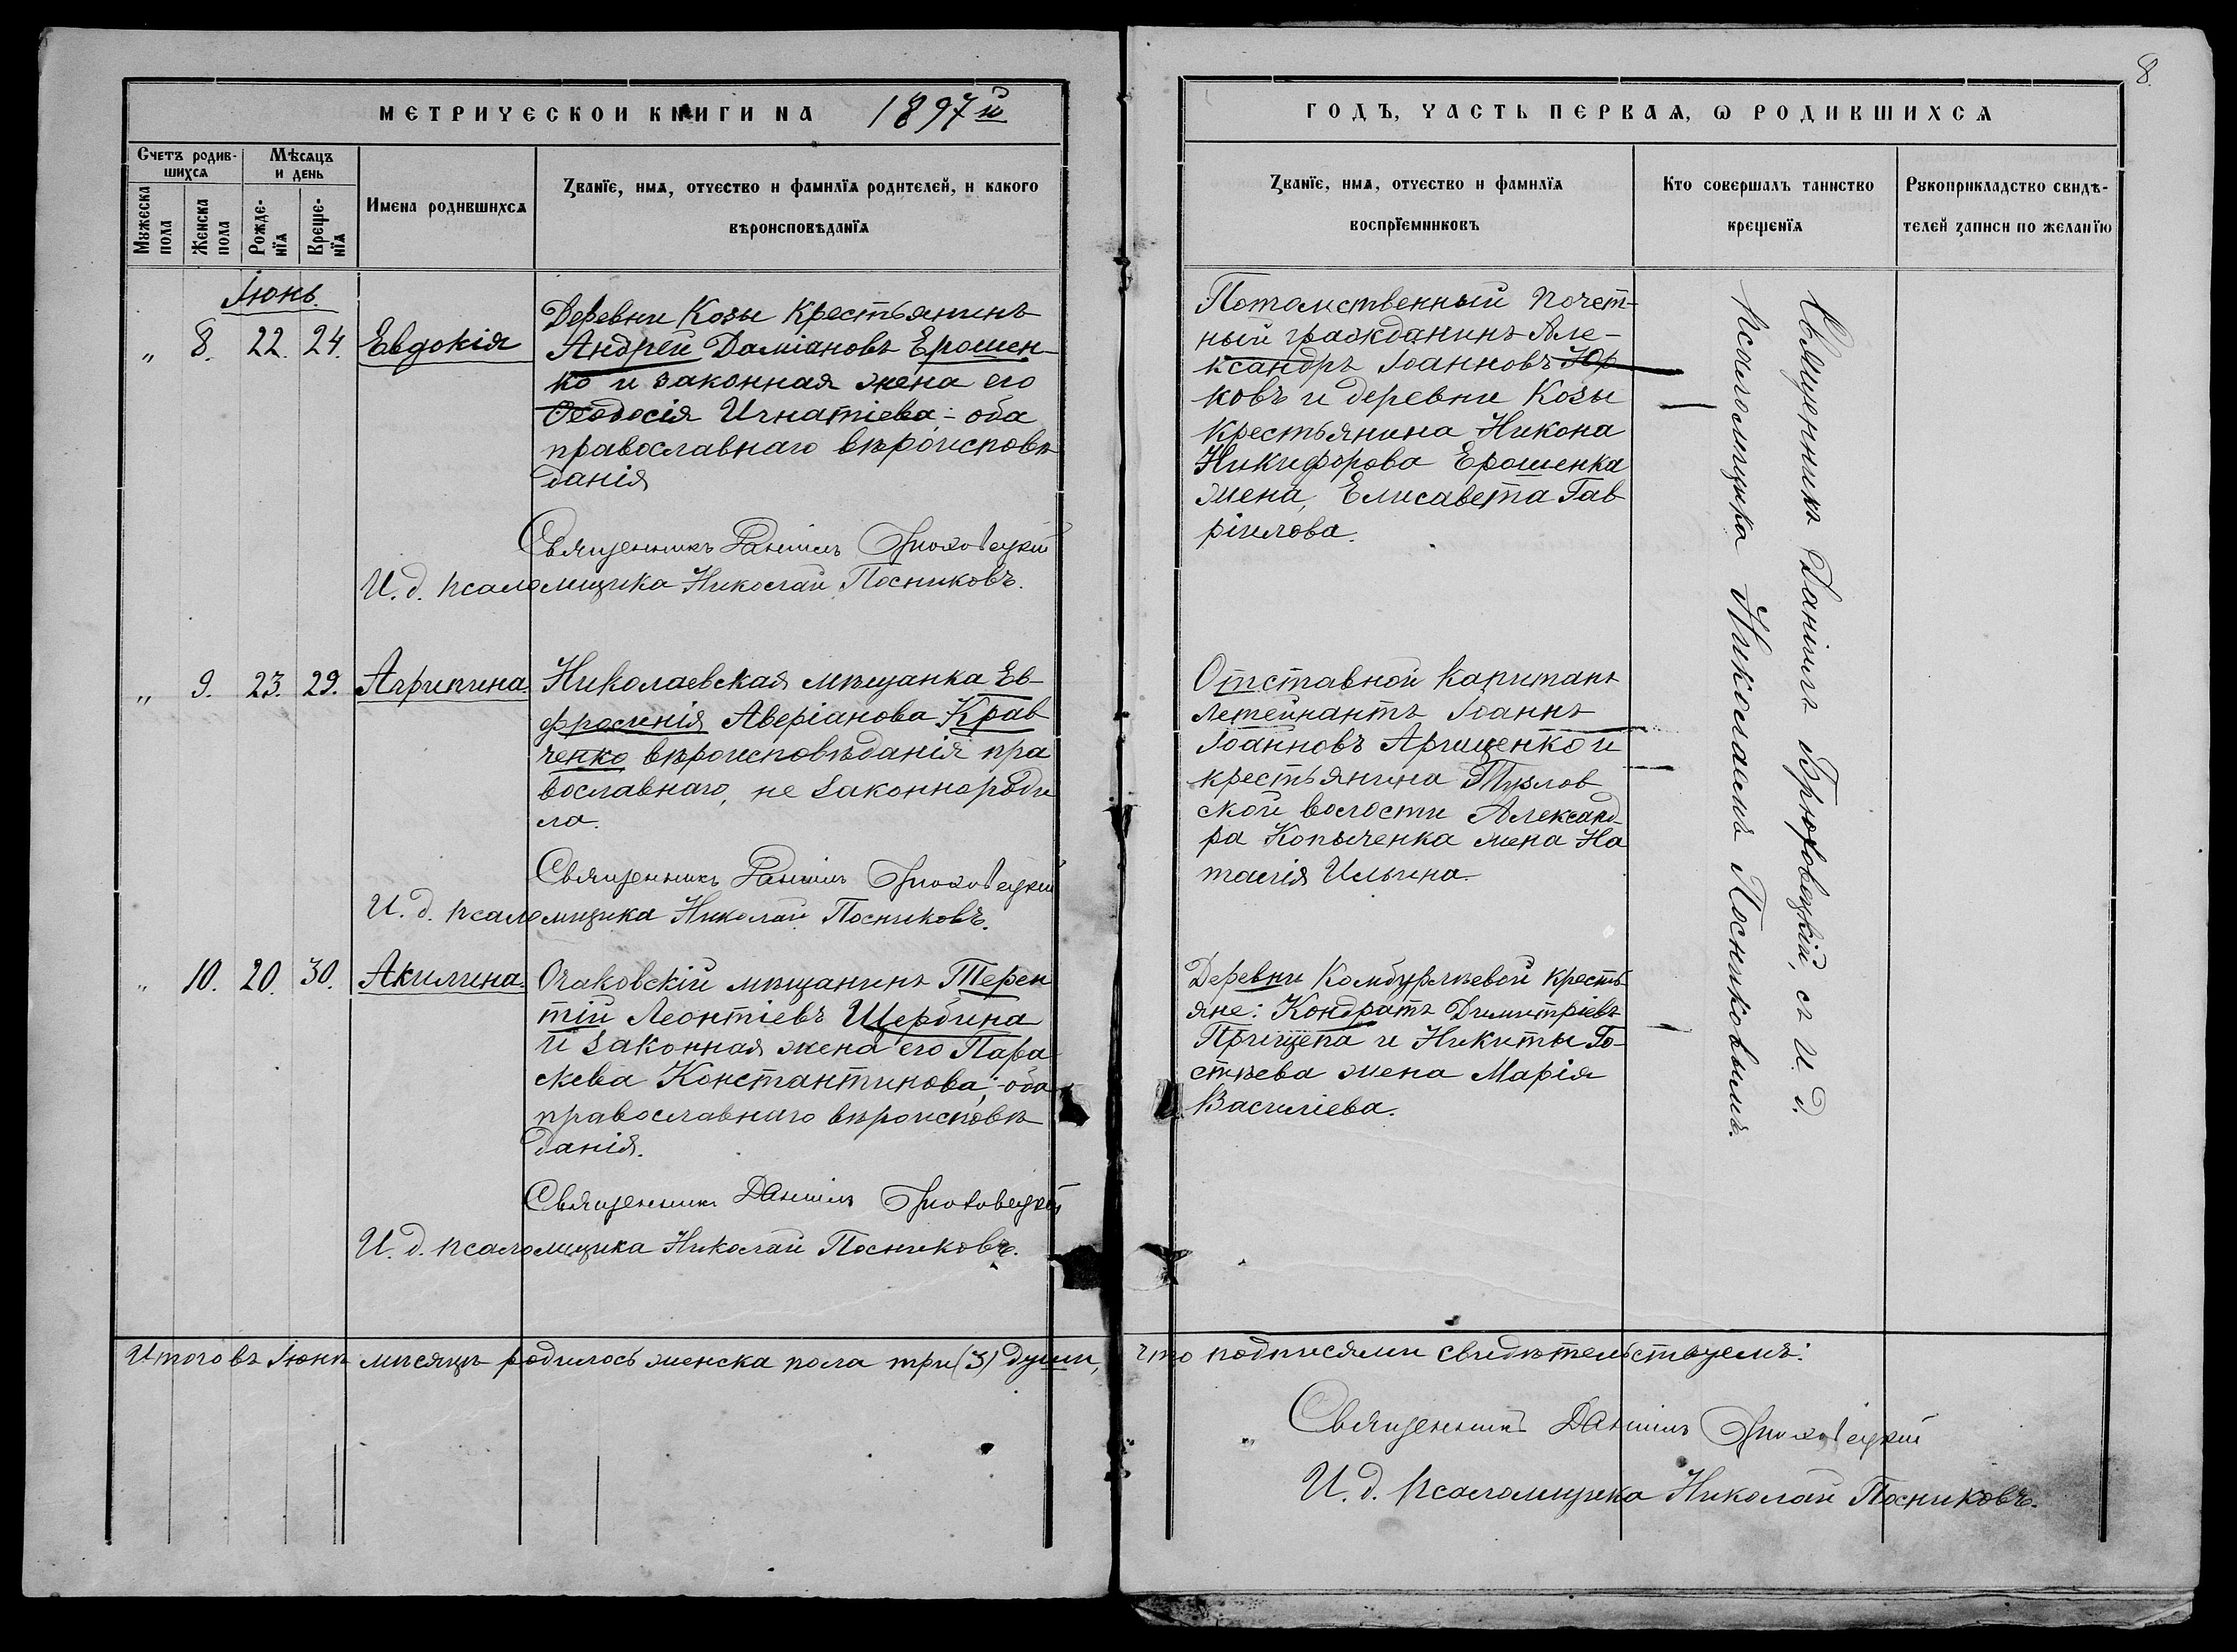 8.
МЕТРИЧЕСКОИ КНИГИ НА 1897й
ГОДЪ, ЧАСТЬ ПЕРВАѦ, Ѡ РОДИВШИХСѦ
Счетъ родив-
шихсѧ
Мѣсѧцъ
и день
Мꙋжеска
пола
Женска
пола
Рожде-
нїѧ
Креще-
нїѧ
Имена родившихсѧ
Званїе, имѧ, отчество и фамилїѧ родителей, и какого
вѣроисповѣданїѧ
Званїе, имѧ, отчество и фамилїѧ
воспрїемниковъ
Кто совершалъ таинство
крещенїѧ
Рꙋкоприкладство свидѣ-
телей записи по желанїю
Іюнь.
„ 8. 22. 24. Евдокія
Деревни Козы Крестьянинъ
Андрей Даміановъ Ерошен-
ко и законная жена его
Ѳеодосія Игнатіева; - оба
православнаго вѣроисповѣ
данія
Священникъ Даніилъ Брюховецкій
И. д. псаломщика Николай Посниковъ.
Потомственный почет-
ный гражданинъ Але-
ксандръ Іоанновъ Юр
ковъ и деревни Козы
крестьянина Никона
Никифорова Ерошенка
жена, Елисавета Гав
ріилова.
„ 9. 23. 29. Агрипина
Николаевская мѣщанка Ев
фросинія Аверіанова Крав
ченко вѣроисповѣданія пра
вославнаго, не законнороди
ла.
Священникъ Даніилъ Брюховецкій
И. д. псаломщика Николай Посниковъ.
Отставной Капитанъ
Летейнантъ Іоаннъ
Іоанновъ Арищенко и
крестьянина
ской волости Александ-
ра Копыченка жена На
талія Ильина.
„ 10. 20. 30. Акилина.
Очаковскій мѣщанинъ Терен
тій Леонтіевъ Щербина
и законная жена его Пара
скева Константинова; - оба
православнаго вѣроисповѣ
данія.
Священникъ Даніилъ Брюховецкій
И. д. псаломщика Николай Посниковъ.
Деревни Комбурлѣевой кресть
яне: Кондратъ Димитріевъ
Прищепа и Никиты Го-
стѣева жена Марія
Василіева.
Священникъ Даніилъ Брюховецкій, съ И. д.
псаломщика Николаемъ Посниковымъ.
Итого въ Іюнѣ мѣсяцѣ родилось женска пола три (3) души, что подписями свидѣтельствуемъ:
Священникъ Даніилъ Брюховецкій
И. д. Псаломщика Николай Посниковъ.